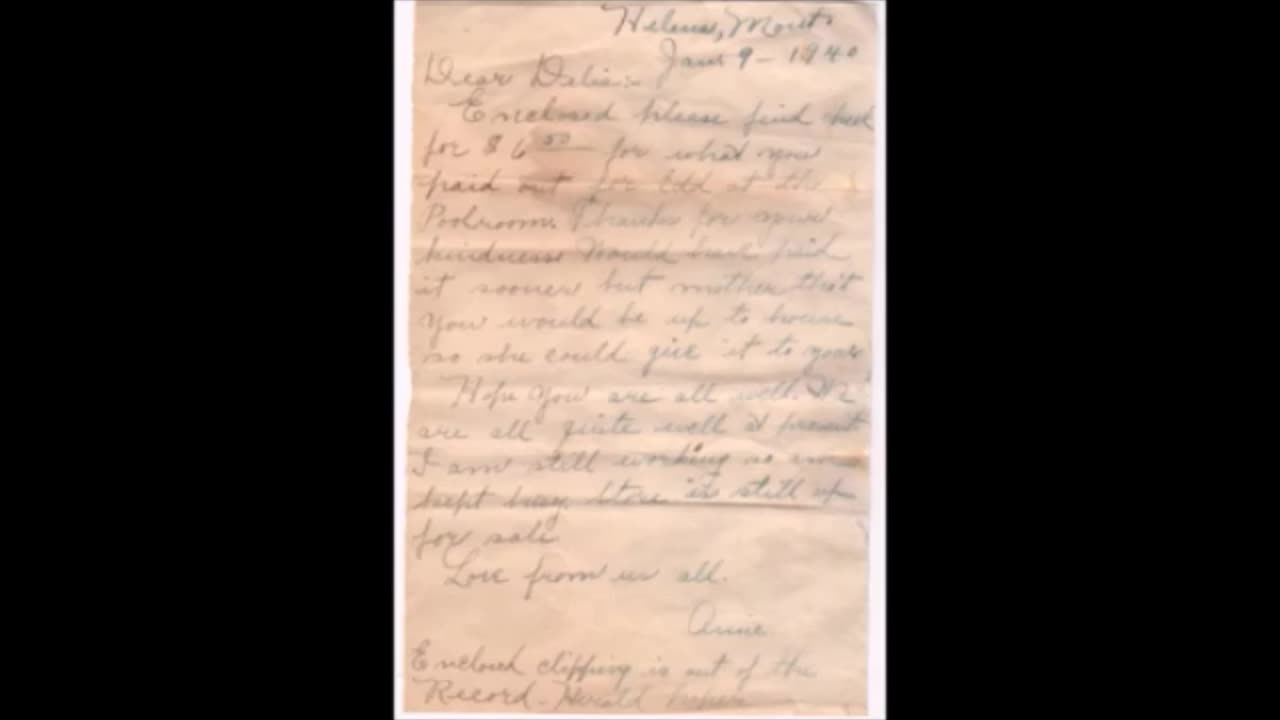 Helena, Mont.
Jan. 9 - 1940
Dear Delia:-
Enclosed please find
for $6.00 for what you
paid out for Edd at the
Poolroom. Thanks for your
kindness Would have paid
it sooner but mother that
you would be up to house
so she could give it to you
Hope you are all well. We
are all quite well at present
I am still working so am
kept busy. Store is still up
for sale
Love from us all.
Annie
Enclosed clipping is out of the
Record-Herald paper